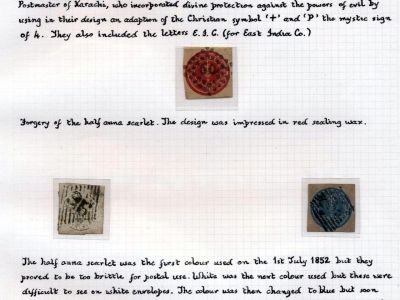 Postmaster of Karachi, who incorporated divine protection against the powers of evil by
using in their design an adaption of the Christian symbol '+' and 'P' the mystic sign
of 4. They also included the letters E.I.C. (for East India Co.)
Forgery of the half anna scarlet. The design was impressed in red sealing wax.
The half anna scarlet was the first colour used on the 1st July 1852 but they
proved to be too brittle for postal use. White was the next colour used but these were
difficult to see on white envelopes. The colour was then changed to blue but soon